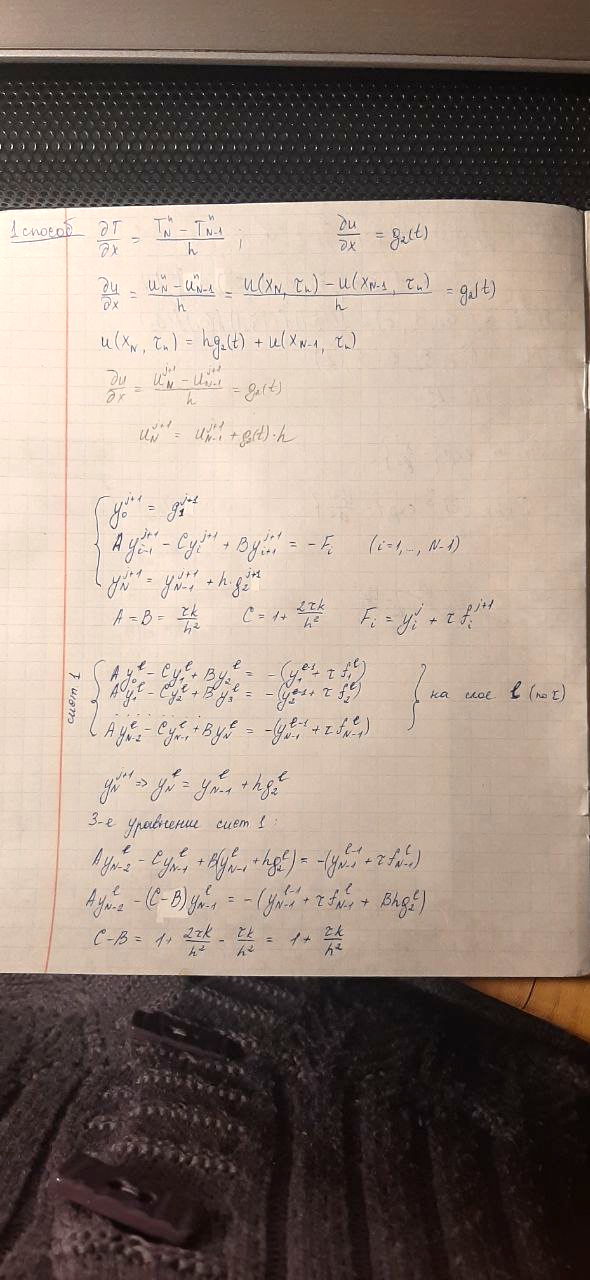 1 способ ∂T/∂x = (T_N^n − T_{N-1}^n)/h ; ∂u/∂x = g₂(t)
∂u/∂x = (u_N^n − u_{N-1}^n)/h = (u(x_N, τ_n) − u(x_{N-1}, τ_n))/h = g₂(t)
u(x_N, τ_n) = hg₂(t) + u(x_{N-1}, τ_n)
∂u/∂x = (u_N^{j+1} − u_{N-1}^{j+1})/h = g₂(t)
u_N^{j+1} = u_{N-1}^{j+1} + g₂(t)·h
{ y_0^{j+1} = g_1^{j+1}
A y_{i-1}^{j+1} − C y_i^{j+1} + B y_{i+1}^{j+1} = −F_i (i=1,..., N-1)
y_N^{j+1} = y_{N-1}^{j+1} + h·g_2^{j+1}
A = B = τk/h² C = 1 + 2τk/h² F_i = y_i^j + τ f_i^{j+1}
сист 1 { A y_0^l − C y_1^l + B y_2^l = −(y_1^{l-1} + τ f_1^l)
A y_1^l − C y_2^l + B y_3^l = −(y_2^{l-1} + τ f_2^l) } на слое l (по τ)
. . . . . . . .
A y_{N-2}^l − C y_{N-1}^l + B y_N^l = −(y_{N-1}^{l-1} + τ f_{N-1}^l)
y_N^{j+1} ⇒ y_N^l = y_{N-1}^l + hg_2^l
3-е уравнение сист 1:
A y_{N-2}^l − C y_{N-1}^l + B(y_{N-1}^l + hg_2^l) = −(y_{N-1}^{l-1} + τ f_{N-1}^l)
A y_{N-2}^l − (C−B) y_{N-1}^l = −(y_{N-1}^{l-1} + τ f_{N-1}^l + Bhg_2^l)
C−B = 1 + 2τk/h² − τk/h² = 1 + τk/h²